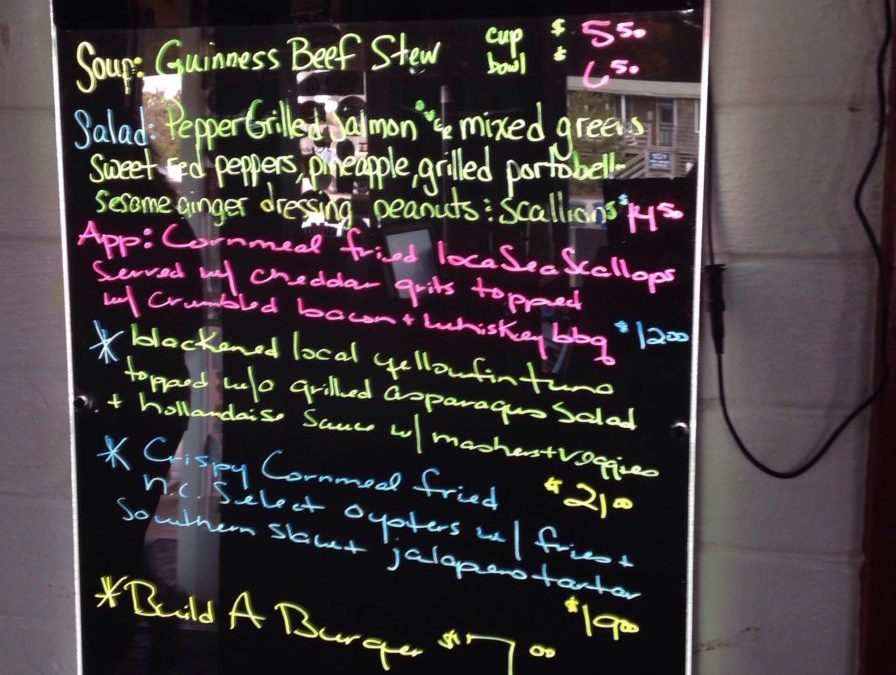 Soup: Guinness Beef Stew cup $ 5.50
bowl $ 6.50
Salad: Pepper Grilled Salmon w/ mixed greens
Sweet red peppers, pineapple, grilled portobell
Sesame ginger dressing peanuts : scallions $ 14.50
App: Cornmeal fried local Sea Scallops
Served w/ cheddar grits topped
w/ crumbled bacon + whiskey bbq $ 12.00
* blackened local yellowfin tuna
topped w/ a grilled asparagus salad
+ hollandaise sauce w/ mashers + veggies
$ 21.00
* Crispy Cornmeal fried
n.c. Select oysters w/ fries +
Southern slaw + jalapeno tartar
$ 19.00
* Build A Burger $ 7.00